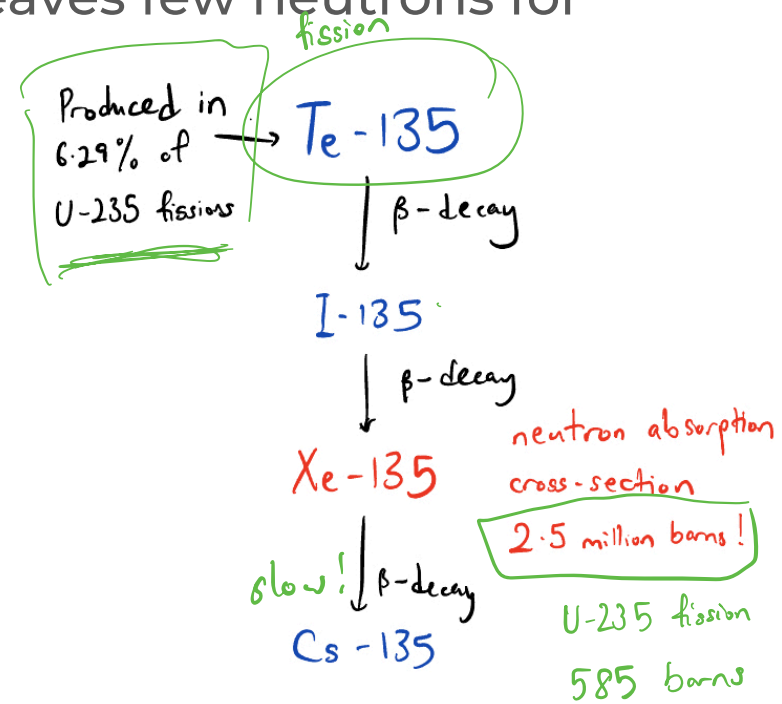 eaves few neutrons for
fission
Produced in
6.29% of
U-235 fissions
Te-135
β-decay
I-135
β-decay
Xe-135
neutron absorption
cross-section
2.5 million barns!
slow!
β-decay
Cs-135
U-235 fission
585 barns